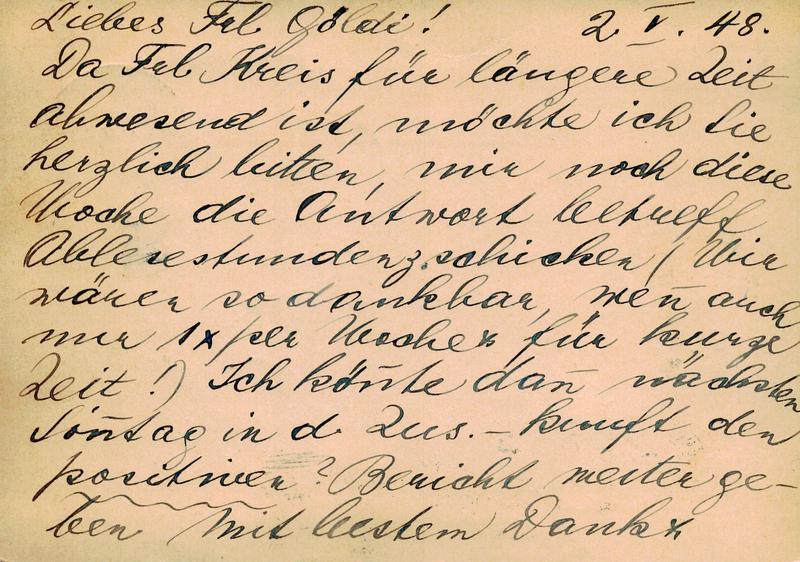 Liebes Frl Göldi! 2. V. 48.
Da Frl Kreis für längere Zeit
abwesend ist, möchte ich Sie
herzlich bitten, mir noch diese
Woche die Antwort betreff
Ablesestunden z. schicken (Wir
wären so dankbar, wen̄ auch
nur 1x per Woche für kurze
Zeit!) Ich kön̄te dan̄ nächsten
Son̄tag in d. Zus. – kunft den
positiven? Bericht weiter ge-
ben Mit bestem Dank